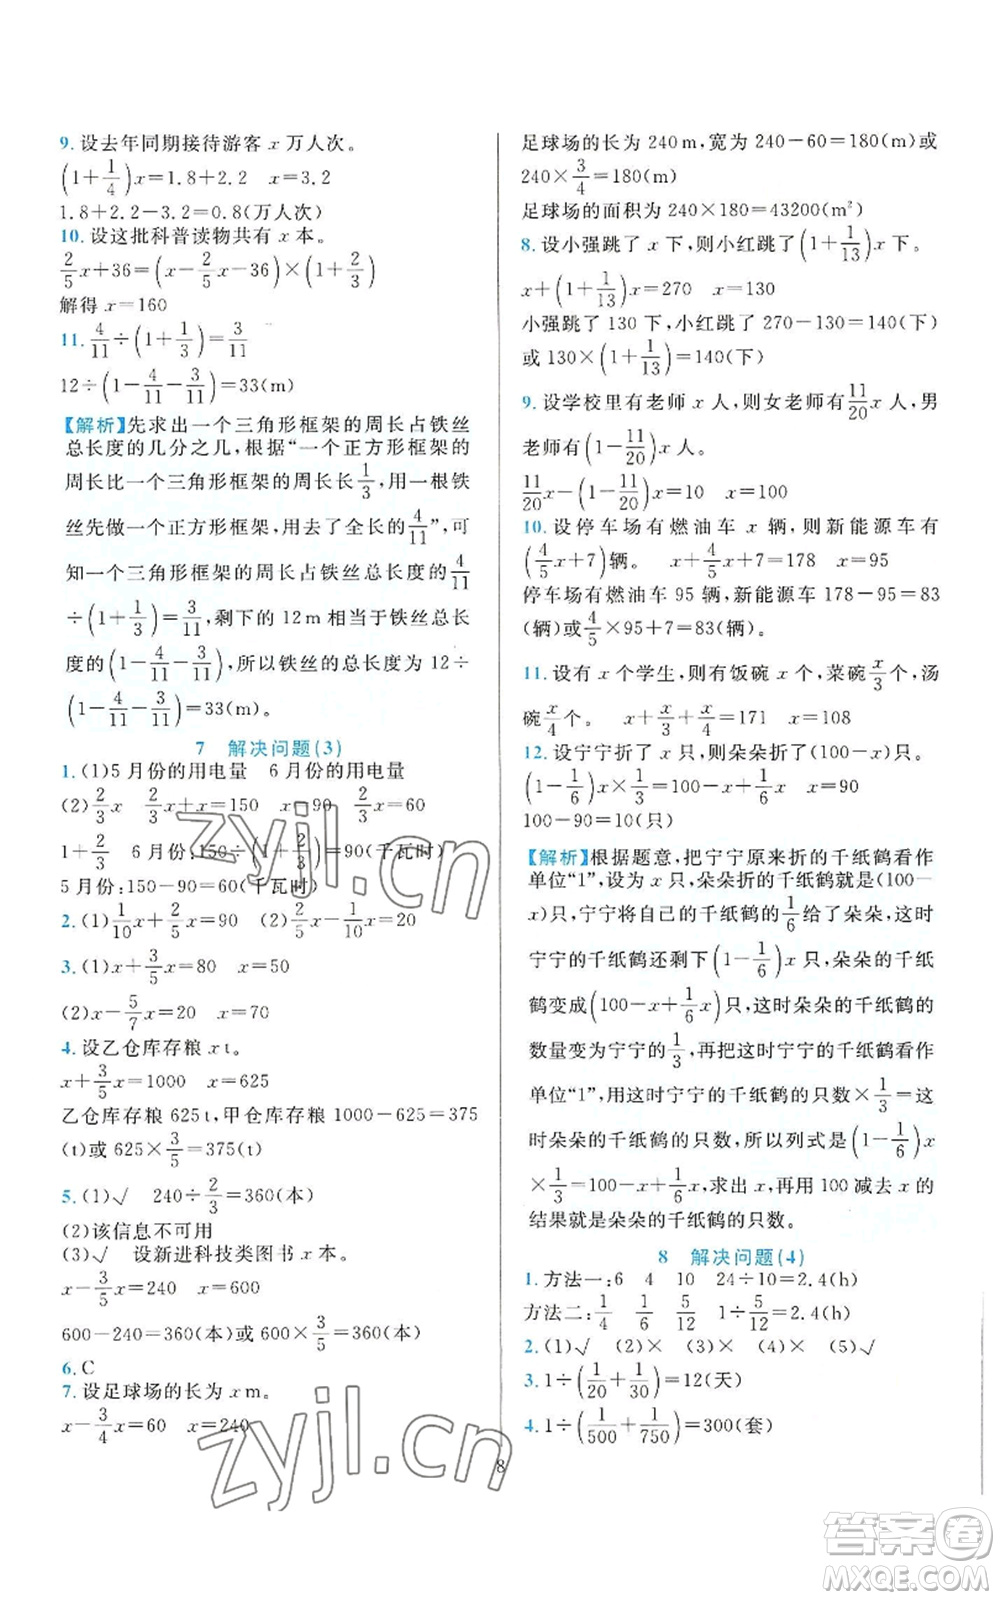 9. 设去年同期接待游客 x 万人次。
(1+1/4)x=1.8+2.2　x=3.2
1.8+2.2-3.2=0.8(万人次)
10. 设这批科普读物共有 x 本。
2/5x+36=(x-2/5x-36)×(1+2/3)
解得 x=160
11. 4/11÷(1+1/3)=3/11
12÷(1-4/11-3/11)=33(m)
【解析】先求出一个三角形框架的周长占铁丝
总长度的几分之几,根据“一个正方形框架的
周长比一个三角形框架的周长长1/3,用一根铁
丝先做一个正方形框架,用去全长的4/11”,可
知一个三角形框架的周长占铁丝总长度的4/11
÷(1+1/3)=3/11,剩下的 12 m 相当于铁丝总长
度的(1-4/11-3/11),所以铁丝的总长度为 12÷
(1-4/11-3/11)=33(m)。
7　解决问题(3)
1. (1)5 月份的用电量　6 月份的用电量
(2)2/3x　2/3x+x=150　x=90　2/3x=60
1+2/3　6 月份:150÷(1+2/3)=90(千瓦时)
5 月份:150-90=60(千瓦时)
2. (1)1/10x+2/5x=90　(2)2/5x-1/10x=20
3. (1)x+3/5x=80　x=50
(2)x-5/7x=20　x=70
4. 设乙仓库存粮 x t。
x+3/5x=1000　x=625
乙仓库存粮 625 t,甲仓库存粮 1000-625=375
(t)或 625×3/5=375(t)
5. (1)√　240÷2/3=360(本)
(2)该信息不可用
(3)√　设新进科技类图书 x 本。
x-3/5x=240　x=600
600-240=360(本)或 600×3/5=360(本)
6. C
7. 设足球场的长为 x m。
x-3/4x=60　x=240
足球场的长为 240 m,宽为 240-60=180(m)或
240×3/4=180(m)
足球场的面积为 240×180=43200(m²)
8. 设小强跳了 x 下,则小红跳了(1+1/13)x 下。
x+(1+1/13)x=270　x=130
小强跳了 130 下,小红跳了 270-130=140(下)
或 130×(1+1/13)=140(下)
9. 设学校里有老师 x 人,则女老师有11/20x 人,男
老师有(1-11/20)x 人。
11/20x-(1-11/20)x=10　x=100
10. 设停车场有燃油车 x 辆,则新能源车有
(4/5x+7)辆。　x+4/5x+7=178　x=95
停车场有燃油车 95 辆,新能源车 178-95=83
(辆)或4/5×95+7=83(辆)。
11. 设有 x 个学生,则有饭碗 x 个,菜碗x/3个,汤
碗x/4个。　x+x/3+x/4=171　x=108
12. 设宁宁折了 x 只,则朵朵折了(100-x)只。
(1-1/6)x×1/3=100-x+1/6x　x=90
100-90=10(只)
【解析】根据题意,把宁宁原来折的千纸鹤看作
单位“1”,设为 x 只,朵朵折的千纸鹤就是(100-
x)只,宁宁将自己的千纸鹤的1/6给了朵朵,这时
宁宁的千纸鹤还剩下(1-1/6)x 只,朵朵的千纸
鹤变成(100-x+1/6x)只,这时朵朵的千纸鹤的
数量变为宁宁的1/3,再把这时宁宁的千纸鹤看作
单位“1”,用这时宁宁的千纸鹤的只数×1/3=这
时朵朵的千纸鹤的只数,所以列式是(1-1/6)x
×1/3=100-x+1/6x,求出 x,再用 100 减去 x 的
结果就是朵朵的千纸鹤的只数。
8　解决问题(4)
1. 方法一:6　4　10　24÷10=2.4(h)
方法二:1/4　1/6　5/12　1÷5/12=2.4(h)
2. (1)√　(2)×　(3)×　(4)√
3. 1÷(1/20+1/30)=12(天)
4. 1÷(1/500+1/750)=300(套)
8
zyjl.cn
zyjl.cn
答案卷
MXQE.COM